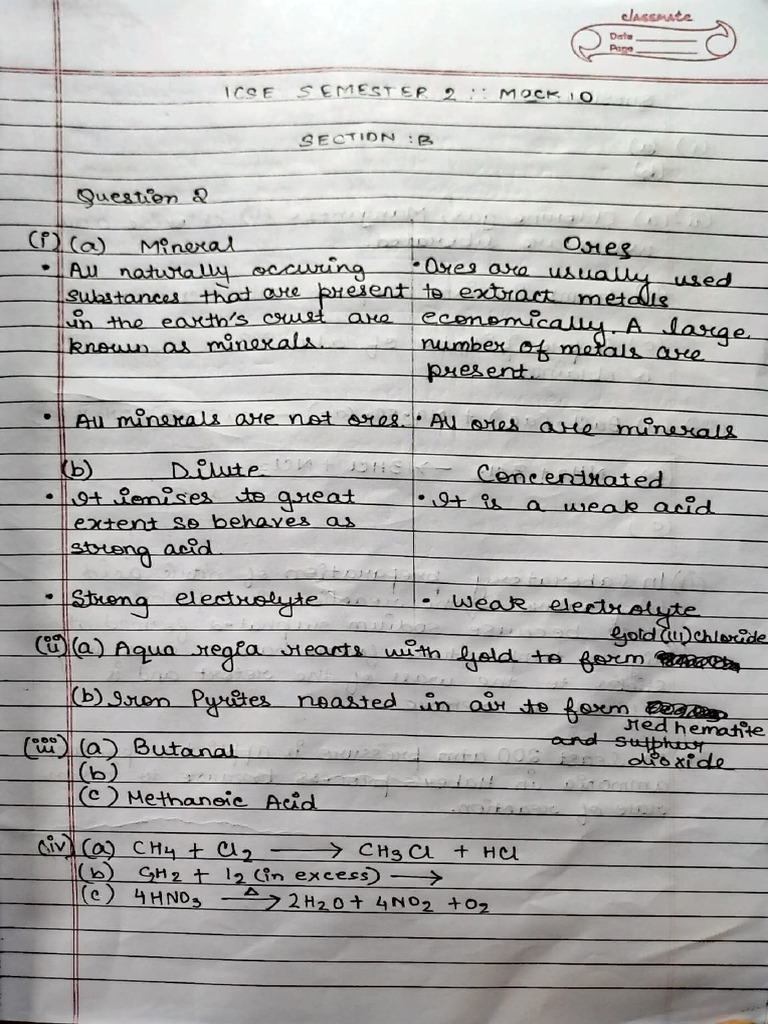 classmate
Date
Page
ICSE SEMESTER 2 :: MOCK 10
SECTION : B
Question 2
(i) (a) Mineral
• All naturally occuring
substances that are present
in the earth's crust are
known as minerals.
• All minerals are not ores.
Ores
• Ores are usually used
to extract metals
economically. A large
number of metals are
present.
• All ores are minerals
(b) Dilute
• It ionises to great
extent so behaves as
strong acid
• Strong electrolyte
Concentrated
• It is a weak acid
• Weak electrolyte
(ii) (a) Aqua regia reacts with Gold to form Gold(III)chloride
(b) Iron Pyrites roasted in air to form
red hematite
and sulphur
dioxide
(iii) (a) Butanal
(b)
(c) Methanoic Acid
(iv) (a) CH4 + Cl2 → CH3Cl + HCl
(b) C2H2 + I2 (in excess) →
(c) 4HNO3 Δ→ 2H2O + 4NO2 + O2